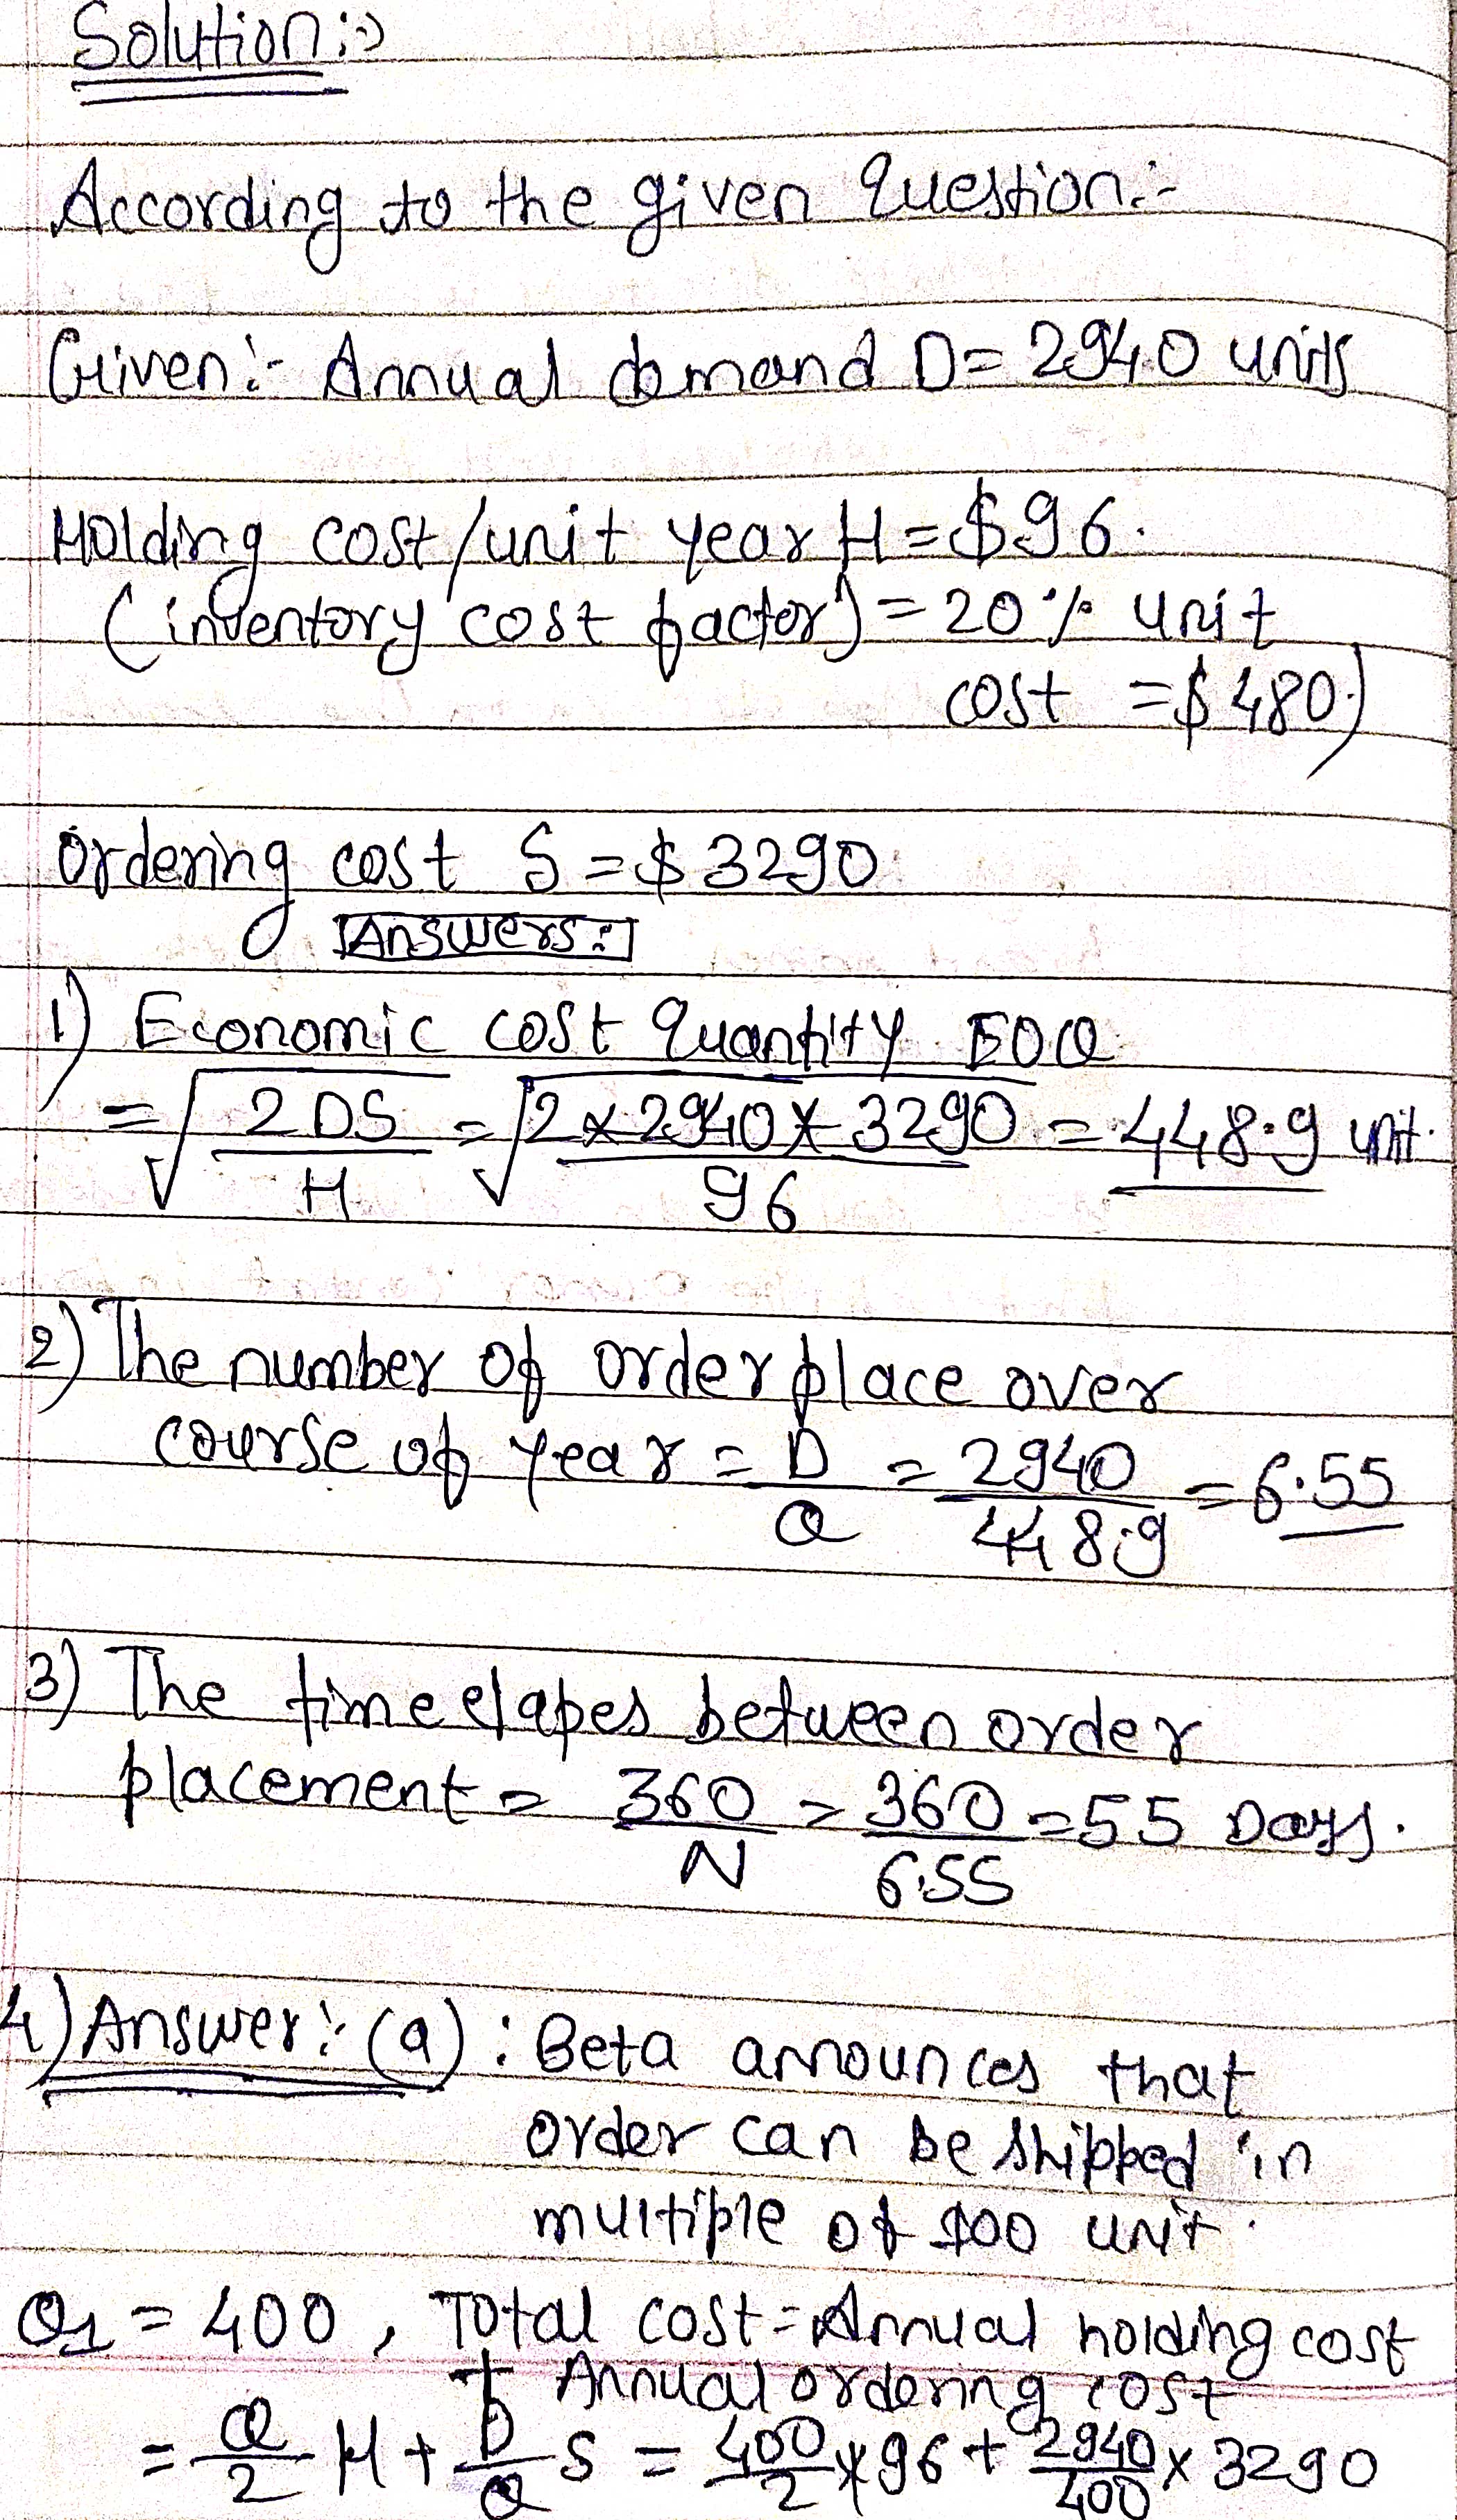 Solution:-
According to the given Question:-
Given:- Annual demand D= 2940 units
Holding cost/unit year H=$96.
(inventory cost factor)=20% unit
cost =$480.)
Ordering cost S=$3290
Answers:
1) Economic cost Quantity EOQ
=√2DS/H = √2×2940×3290/96 = 448.9 unit.
2) The number of order place over
course of year = D/Q = 2940/448.9 = 6.55
3) The time elapes between order
placement = 360/N = 360/6.55 = 55 Days.
4) Answer:- (a): Beta announces that
order can be shipped in
multiple of 100 unit.
Q1 = 400, Total cost = Annual holding cost
+ Annual ordering cost
= Q/2 H + D/Q S = 400/2 × 96 + 2940/400 × 3290